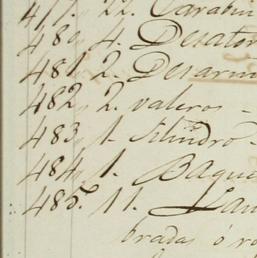 477. 22. Carabin
480 4. Desator
481 2. Desarm
482 2. valeros -
483 1. Silindro -
484 1. Baque
485. 11. Lan
bradas ó ro